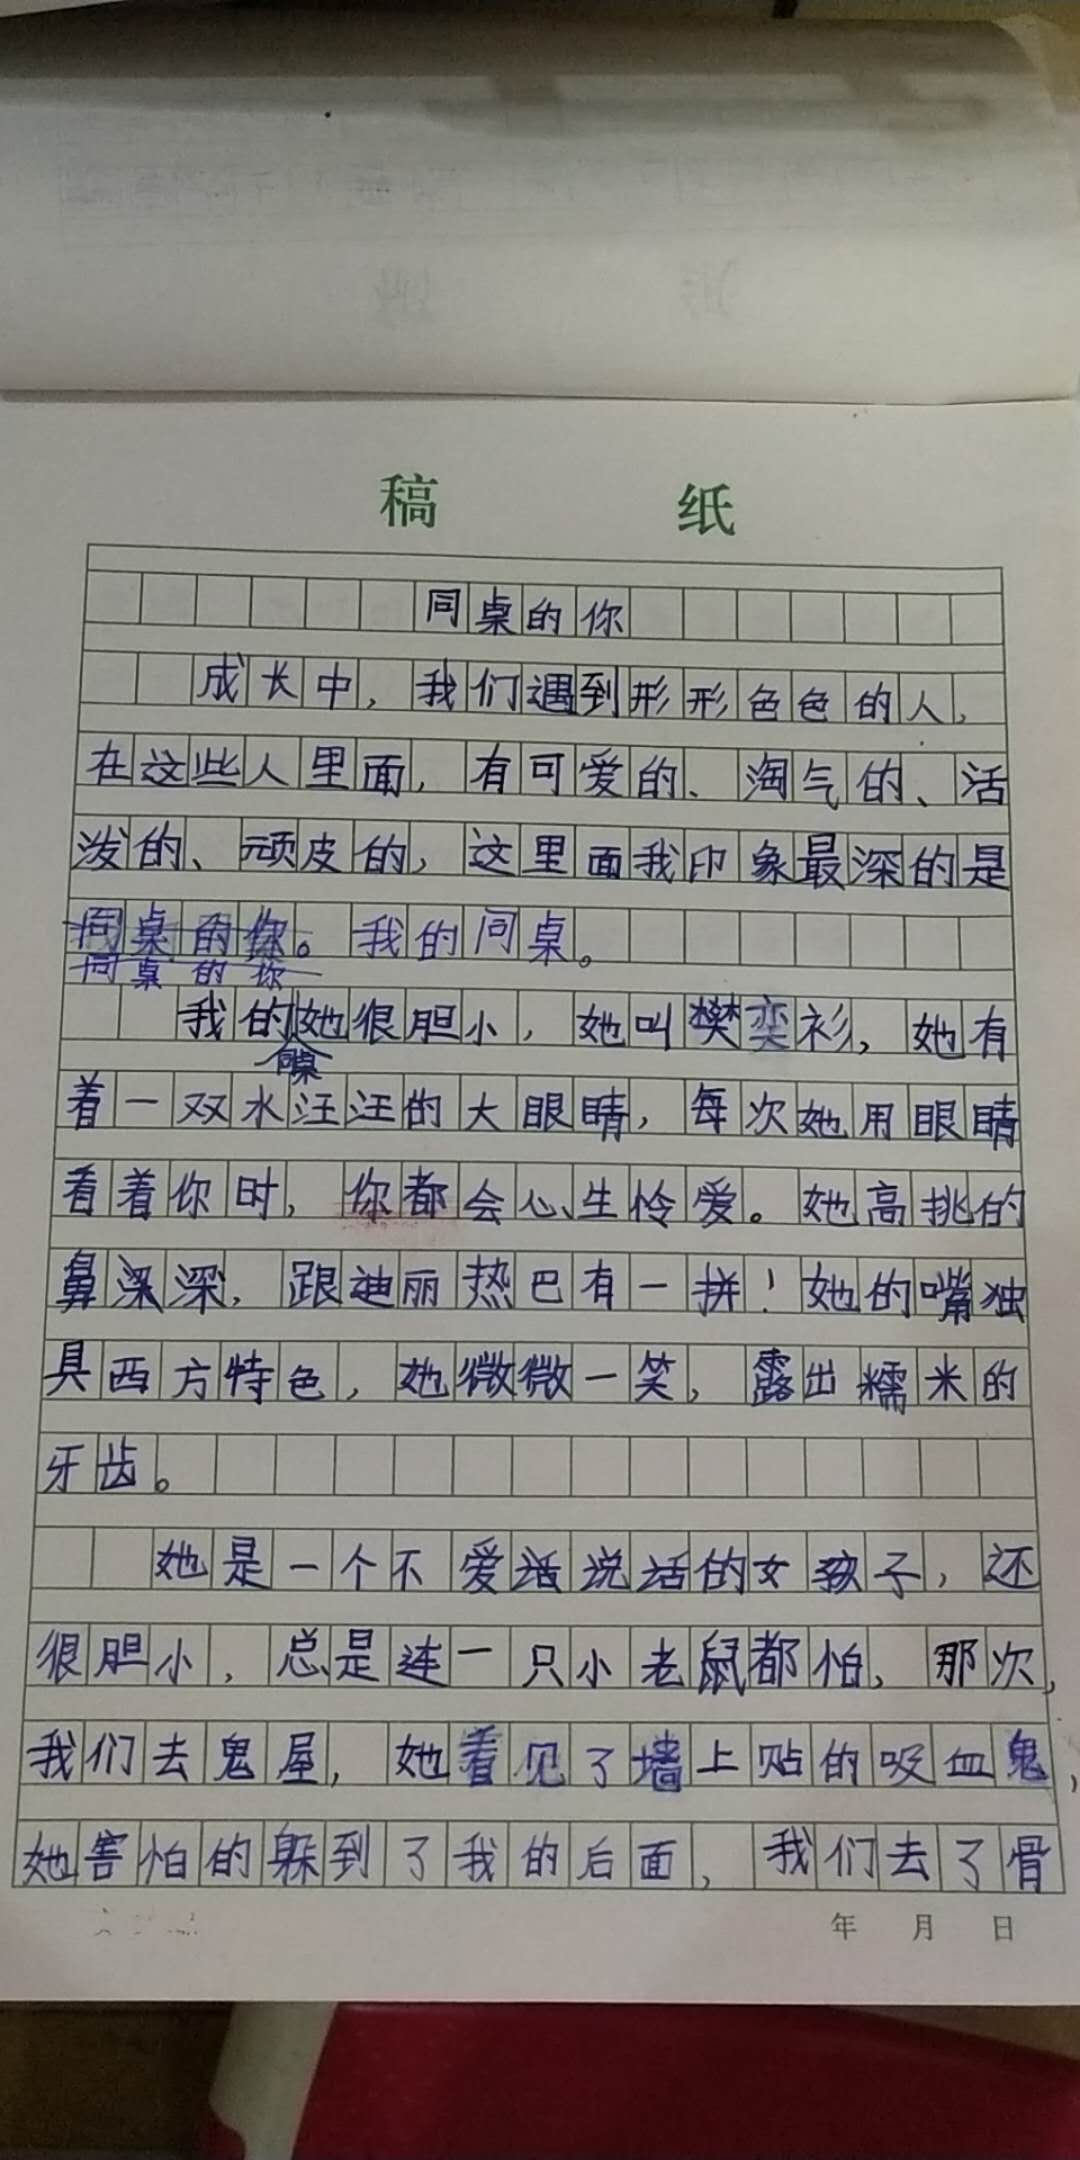 稿 纸
同桌的你
成长中，我们遇到形形色色的人，
在这些人里面，有可爱的、淘气的、活
泼的、顽皮的，这里面我印象最深的是
同桌的你。我的同桌。
同桌的你
我的她很胆小，她叫樊奕衫，她有
同桌
着一双水汪汪的大眼睛，每次她用眼睛
看着你时，你都会心生怜爱。她高挑的
鼻深深，跟迪丽热巴有一拼！她的嘴独
具西方特色，她微微一笑，露出糯米的
牙齿。
她是一个不爱话说话的女孩子，还
很胆小，总是连一只小老鼠都怕，那次，
我们去鬼屋，她看见了墙上贴的吸血鬼，
她害怕的躲到了我的后面，我们去了骨
年 月 日